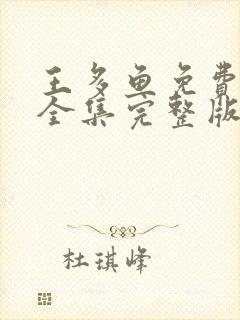 王多鱼免費
全集完整版
杜琪峰